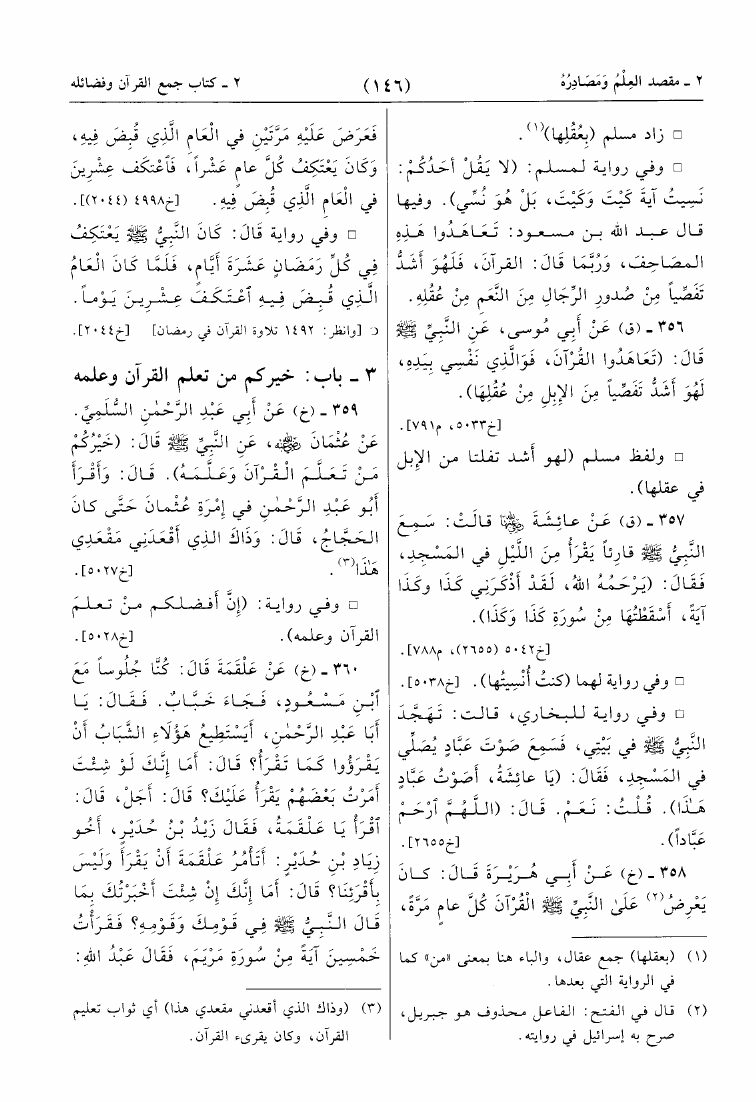 ٢ ـ مقصد العِلْمُ وَمَصَادِرُهُ
(١٤٦)
٢ ـ كتاب جمع القرآن وفضائله
□ زاد مسلم (بِعُقُلِها)(١).
□ وفي رواية لمسلم: (لا يَقُلْ أحَدُكُمْ:
نَسِيتُ آيةَ كَيْتَ وَكَيْتَ، بَلْ هُوَ نُسِّي). وفيها
قال عبد الله بن مسعود: تَعَاهَدُوا هَذِهِ
المصَاحِفَ، وَرُبَّمَا قَالَ: القرآنَ، فَلَهُوَ أَشَدُّ
تَفَصِّياً مِنْ صُدورِ الرِّجَالِ مِنَ النَّعَمِ مِنْ عُقُلِهِ.
٣٥٦ ـ (ق) عَنْ أَبِي مُوسى، عَنِ النَّبِيِّ ﷺ
قَالَ: (تَعَاهَدُوا القُرْآنَ، فَوَالَّذِي نَفْسِي بِيَدِهِ،
لَهُوَ أَشَدُّ تَفَصِّياً مِنَ الإبِلِ مِنْ عُقُلِهَا).
[خ٥٠٣٣، م٧٩١].
□ ولفظ مسلم (لهو أشد تفلتا من الإبل
في عقلها).
٣٥٧ ـ (ق) عَنْ عـائِشَةَ ﵂ قالَتْ: سَمِعَ
النَّبِيُّ ﷺ قارِئاً يَقْرَأُ مِنَ اللَّيْلِ في المَسْجِدِ،
فَقَالَ: (يَرْحَمُهُ اللهُ، لَقَدْ أَذْكَرَنِي كَذَا وكَذَا
آيَةً، أَسْقَطْتُهَا مِنْ سُورَةِ كَذَا وَكَذَا).
[خ٥٠٤٢ (٢٦٥٥)، م٧٨٨].
□ وفي رواية لهما (كنتُ أُنْسِيتُها). [خ٥٠٣٨].
□ وفي روايـة للـبخاري، قالت: تَهَجَّدَ
النَّبِيُّ ﷺ في بَيْتِي، فَسَمِعَ صَوْتَ عَبَّادٍ يُصَلِّي
في المَسْجِدِ، فَقَالَ: (يَا عائِشَةُ، أَصَوْتُ عَبَّادٍ
هَـٰذَا). قُـلْتُ: نَـعَـمْ. قَـالَ: (الـلَّـهُـمَّ ٱرْحَـمْ
عَبَّاداً). [خ٢٦٥٥].
٣٥٨ ـ (خ) عَـنْ أَبِـي هُـرَيْـرَةَ قَـالَ: كـانَ
يَعْرِضُ(٢) عَلَىٰ النَّبِيِّ ﷺ الْقُرْآنَ كُلَّ عامٍ مَرَّةً،
(١) (بعقلها) جمع عقال، والباء هنا بمعنى «من» كما
في الرواية التي بعدها.
(٢) قال في الفتح: الفاعل محذوف هو جبريل،
صرح به إسرائيل في روايته.
فَعَرَضَ عَلَيْهِ مَرَّتَيْنِ في الْعَامِ الَّذِي قُبِضَ فِيهِ،
وَكَانَ يَعْتَكِفُ كُلَّ عامٍ عَشْراً، فَٱعْتَكَفَ عِشْرِينَ
في الْعَامِ الَّذِي قُبِضَ فِيهِ. [خ٤٩٩٨ (٢٠٤٤)].
□ وفي رواية قَالَ: كَانَ النَّبِيُّ ﷺ يَعْتَكِفُ
فِي كُلِّ رَمَضَانٍ عَشَرَةَ أَيَّامٍ، فَلَمَّا كَانَ الْعَامُ
الَّذِي قُبِضَ فِيهِ ٱعْتَكَفَ عِشْرِينَ يَوْماً.
□ [وانظر: ١٤٩٢ تلاوة القرآن في رمضان] [خ٢٠٤٤].
٣ ـ باب: خيركم من تعلم القرآن وعلمه
٣٥٩ ـ (خ) عَنْ أَبِي عَبْدِ الرَّحْمٰنِ السُّلَمِيِّ.
عَنْ عُثْمَانَ ﵁، عَنِ النَّبِيِّ ﷺ قَالَ: (خَيْرُكُمْ
مَـنْ تَـعَـلَّـمَ الْـقُـرْآنَ وَعَـلَّـمَـهُ). قَـالَ: وَأَقْـرَأَ
أَبُو عَبْدِ الرَّحْمٰنِ في إِمْرَةِ عُثْمانَ حَتَّى كانَ
الحَجَّاجُ، قَالَ: وَذَاكَ الذِي أَقْعَدَنِي مَقْعَدِي
هٰذَا(٣). [خ٥٠٢٧].
□ وفـي روايـة: (إنَّ أَفـضـلـكـم مـنْ تـعـلـمَ
القرآن وعلمه). [خ٥٠٢٨].
٣٦٠ ـ (خ) عَنْ عَلْقَمَةَ قَالَ: كُنَّا جُلُوساً مَعَ
ٱبْنِ مَسْعُودٍ، فَـجَـاءَ خَـبَّـابٌ. فَـقَـالَ: يَـا
أَبَا عَبْدِ الرَّحْمٰنِ، أَيَسْتَطِيعُ هَؤُلَاءِ الشَّبَابُ أَنْ
يَقْرَؤُوا كَمَا تَقْرَأُ؟ قَالَ: أَمَا إِنَّكَ لَوْ شِئْتَ
أَمَرْتُ بَعْضَهُمْ يَقْرَأُ عَلَيْكَ؟ قَالَ: أَجَلْ، قَالَ:
ٱقْرَأْ يَا عَلْقَمَةُ، فَقَالَ زَيْدُ بْنُ حُدَيْرٍ، أَخُو
زِيَادِ بْنِ حُدَيْرٍ: أَتَأْمُرُ عَلْقَمَةَ أَنْ يَقْرَأَ وَلَيْسَ
بِأَقْرَئِنَا؟ قَالَ: أَمَا إِنَّكَ إِنْ شِئْتَ أَخْبَرْتُكَ بِمَا
قَالَ النَّـبِيُّ ﷺ فِي قَوْمِكَ وَقَوْمِهِ؟ فَقَـرَأْتُ
خَمْسِينَ آيَةً مِنْ سُورَةِ مَرْيَمَ، فَقَالَ عَبْدُ اللهِ:
(٣) (وذاك الذي أقعدني مقعدي هذا) أي ثواب تعليم
القرآن، وكان يقرىء القرآن.